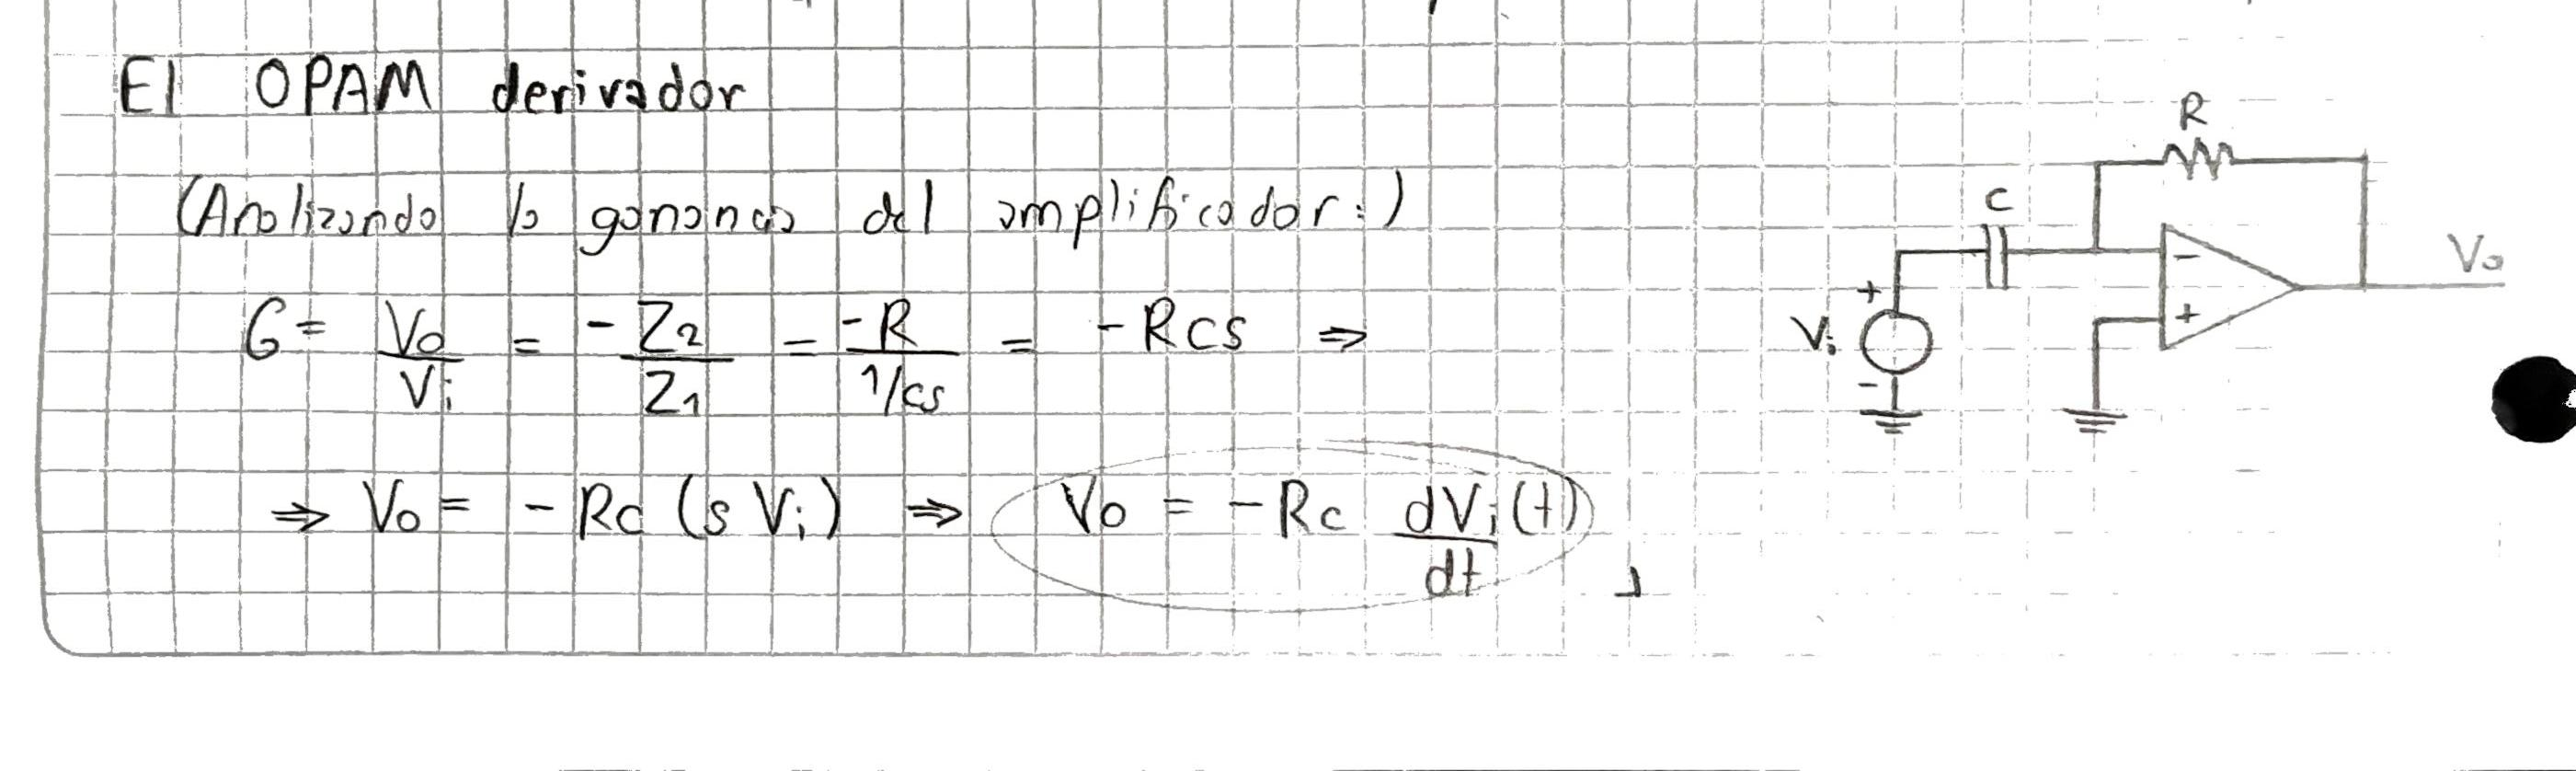 El OPAM derivador
(Analizando la ganancia del amplificador:)
G = Vo/Vi = -Z2/Z1 = -R/(1/cs) = -RCS ⇒
⇒ Vo = -Rc (s Vi) ⇒ Vo = -Rc dVi(t)/dt
R
C
Vo
-
+
+
Vi
-